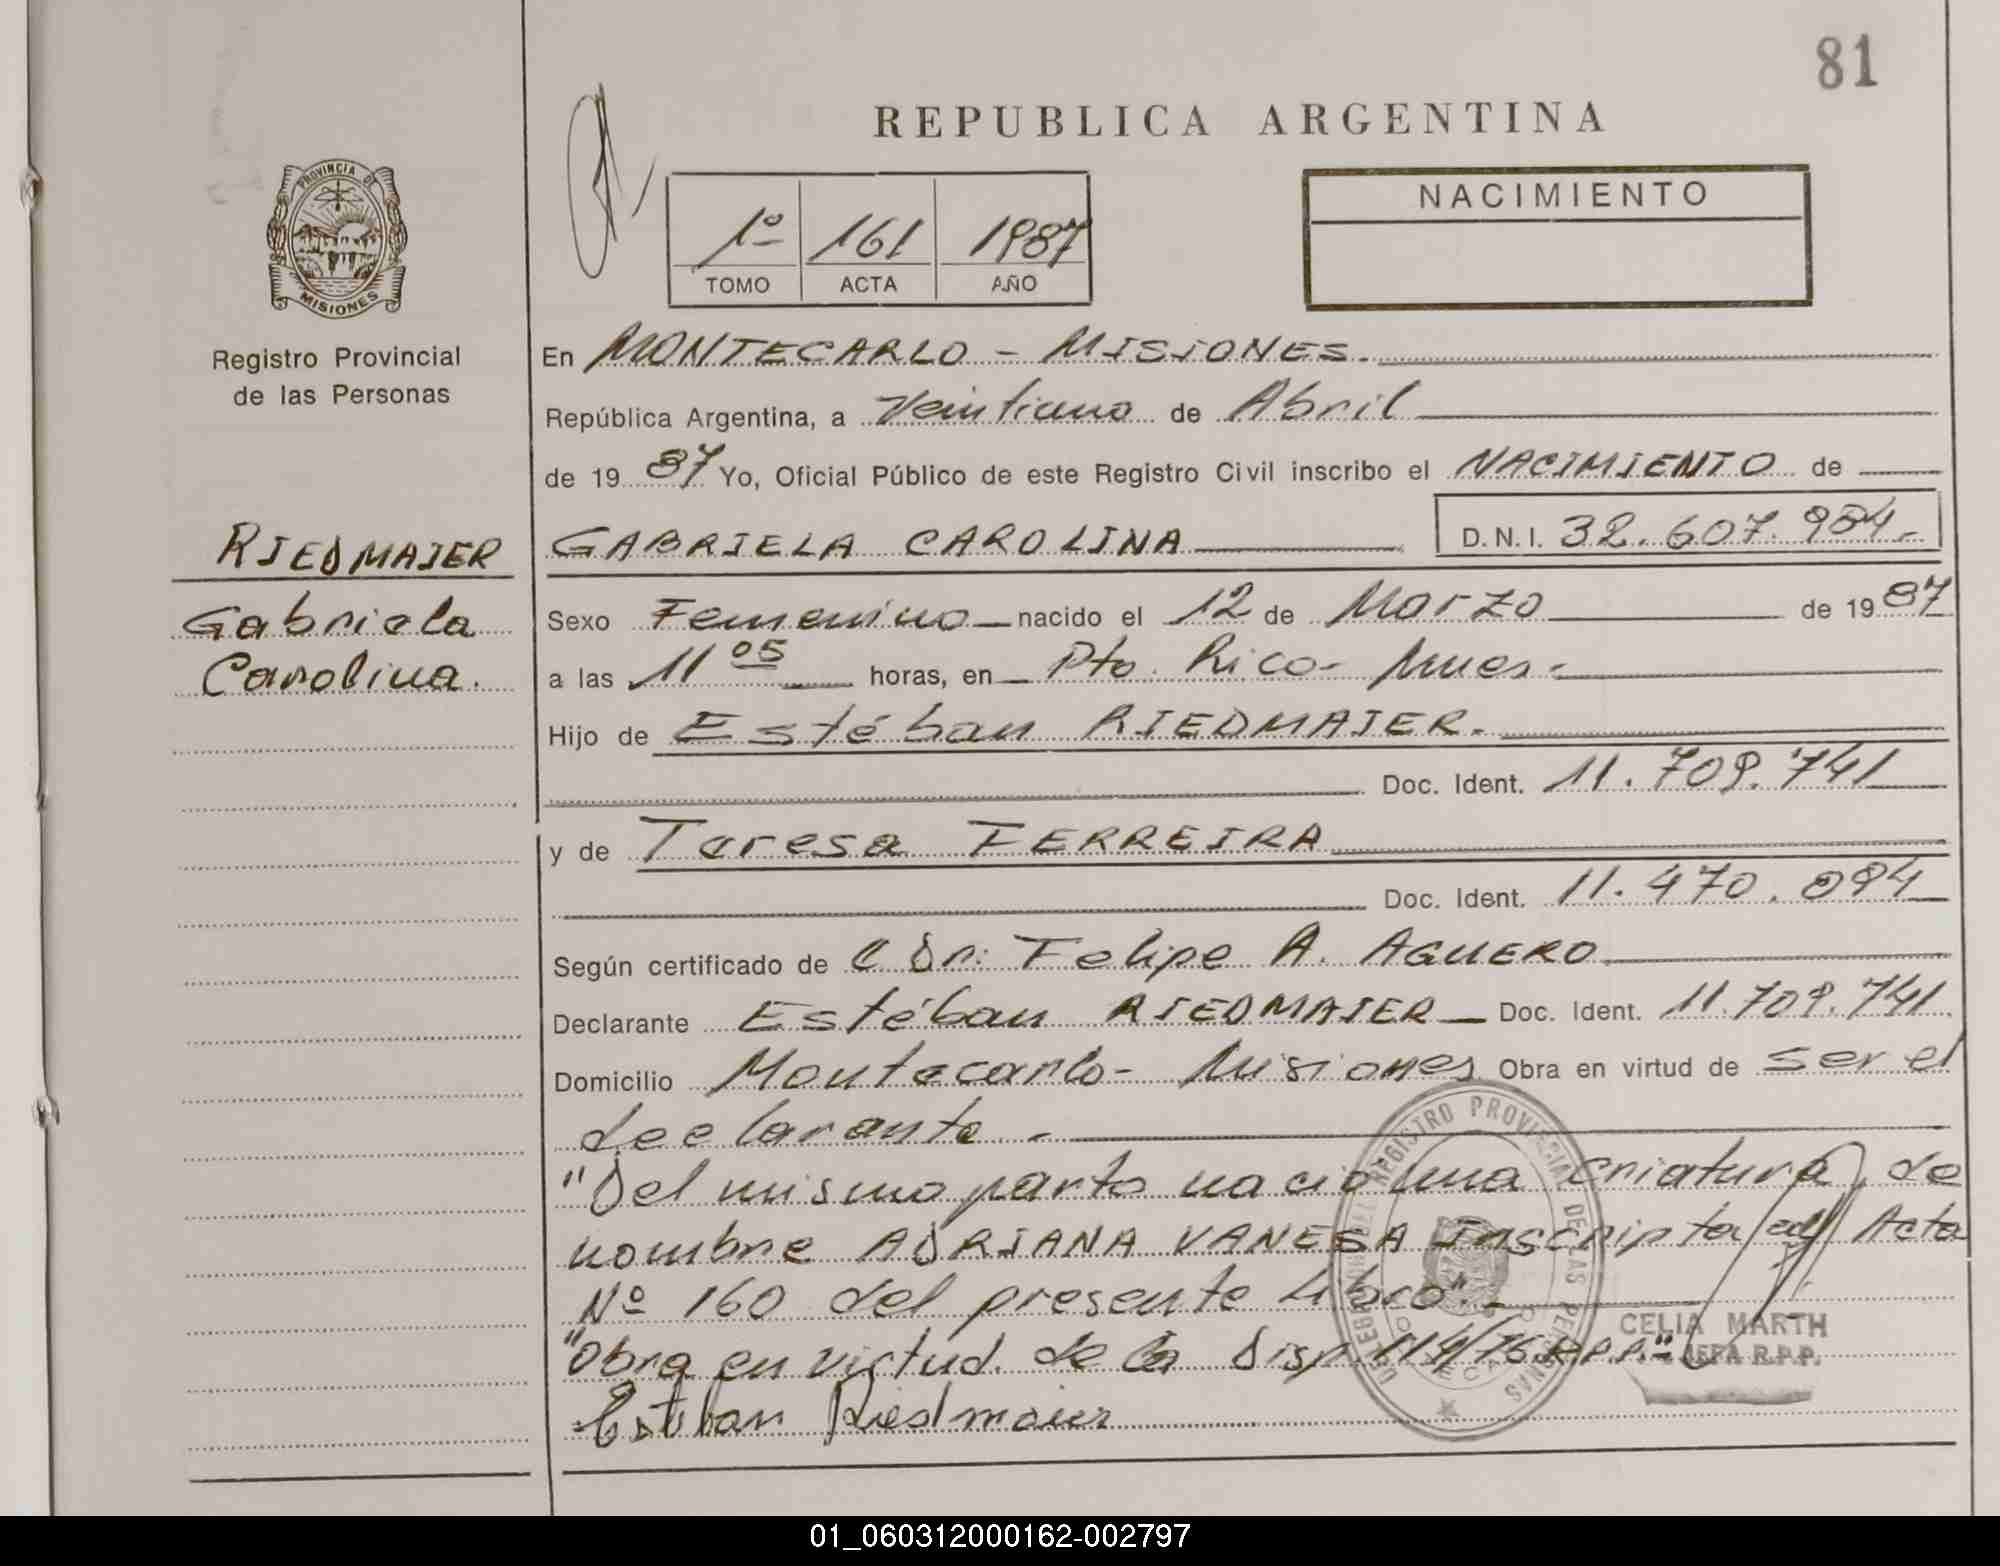 81
REPUBLICA ARGENTINA
PROVINCIA DE
MISIONES
Registro Provincial
de las Personas
1º 161 1987
TOMO ACTA AÑO
NACIMIENTO
En MONTECARLO - MISIONES.
República Argentina, a Veintiuno de Abril
de 1987 Yo, Oficial Público de este Registro Civil inscribo el NACIMIENTO de
RIEDMAIER
Gabriela
Carolina.
GABRIELA CAROLINA D.N.I. 32.607.984.-
Sexo Femenino nacido el 12 de Marzo de 1987
a las 11 05 horas, en Pto. Rico- Mnes.-
Hijo de Estéban RIEDMAIER.
Doc. Ident. 11.709.741
y de Teresa FERREIRA
Doc. Ident. 11.470.094
Según certificado de Dr: Felipe A. AGUERO
Declarante Estéban RIEDMAIER Doc. Ident. 11.709.741
Domicilio Montecarlo- Misiones Obra en virtud de ser el
declarante.-
"Del mismo parto nacio una criatura de
nombre ADRIANA VANESA Inscripta en Acta
Nº 160 del presente Libro".-
"Obra en virtud de la Disp. 114/76 R.P.P."
Esteban Riedmaier
REGISTRO PROVINCIAL DE LAS PERSONAS
CELIA MARTH
JEFA R.P.P.
01_060312000162-002797